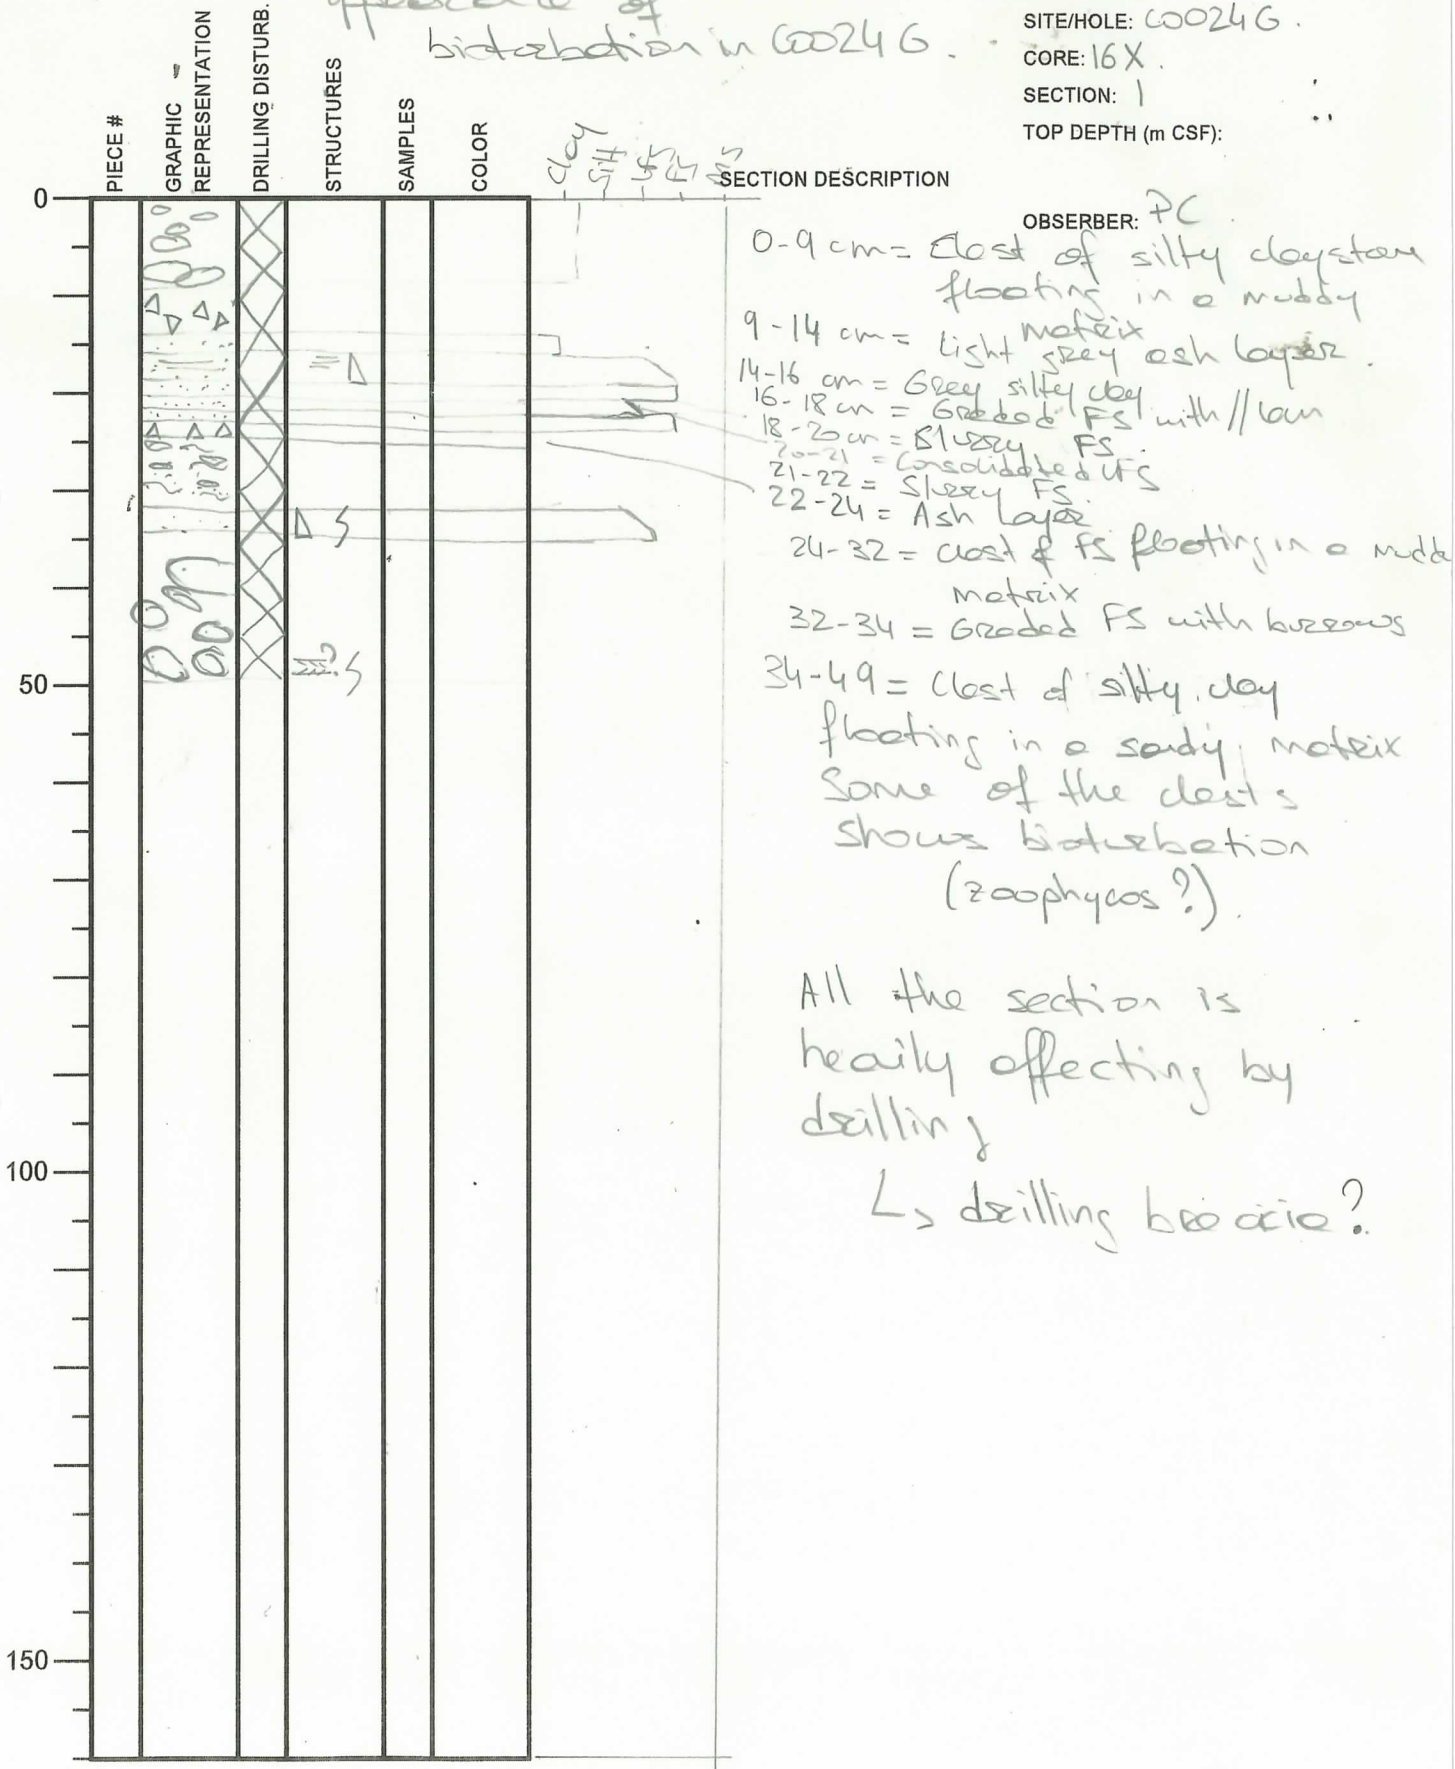 of
bioturbation in C0024G.
SITE/HOLE: C0024G.
CORE: 16X.
SECTION: 1
TOP DEPTH (m CSF):
OBSERBER: PC
PIECE #
GRAPHIC REPRESENTATION
DRILLING DISTURB.
STRUCTURES
SAMPLES
COLOR
Clay
Silt
SECTION DESCRIPTION
0
50
100
150
0-9 cm = Clast of silty claystone
floating in a muddy
matrix
9-14 cm = Light grey ash layer.
14-16 cm = Grey silty clay
16-18 cm = Graded FS with // lam
18-20 cm = Slurry FS.
20-21 = Consolidated VFS
21-22 = Slurry FS.
22-24 = Ash Layer
24-32 = Clast of FS floating in a mudd
matrix
32-34 = Graded FS with burrows
34-49 = Clast of silty clay
floating in a sandy matrix
Some of the clasts
shows bioturbation
(zoophycos?).
All the section is
heaily affecting by
drilling
↳ drilling breccia?